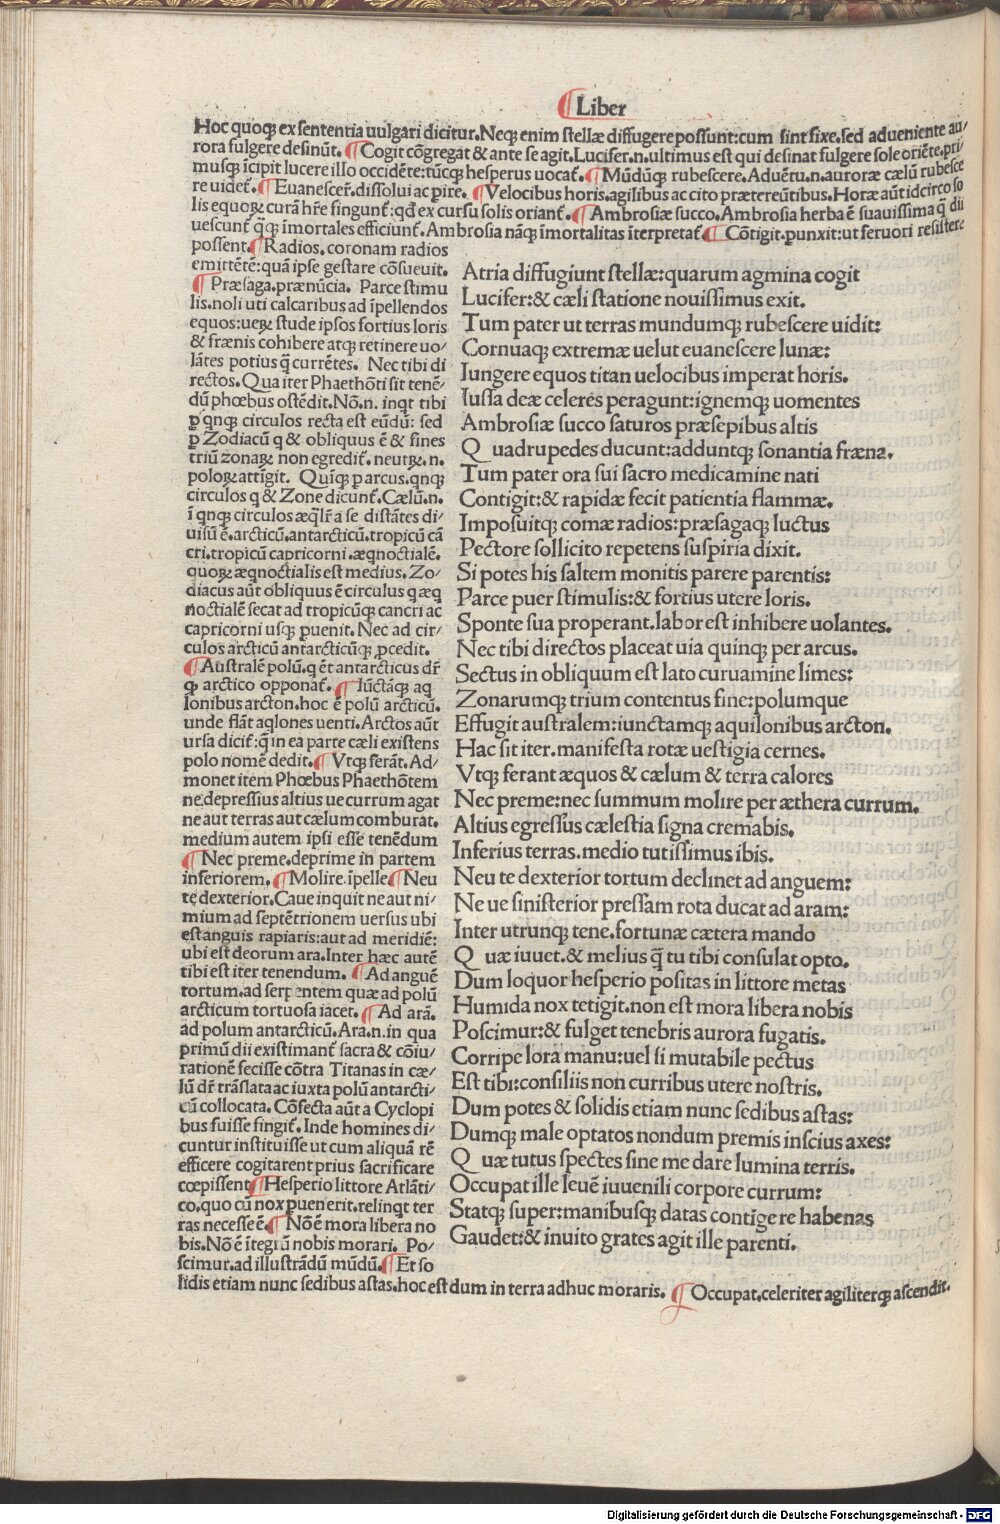 ¶Liber
Hoc quoqꝫ ex sententia uulgari dicitur.Neqꝫ enim stellæ diffugere possunt:cum sint fixe.sed adueniente au/
rora fulgere desinũt. ¶Cogit cõgregat & ante se agit.Lucifer.n.ultimus est qui desinat fulgere sole oriẽte.pri/
musqꝫ ĩcipit lucere illo occidẽte:tũcqꝫ hesperus uocať. ¶Mũdũqꝫ rubescere.Aduẽtu.n.auroræ cælũ rubesce
re uideť.¶Euanesceř.dissolui ac ꝑire. ¶Velocibus horis.agilibus ac cito prætereũtibus.Horæ aũt idcirco so
lis equoꝝ curã hr̃e finguntˀ:qđ ex cursu solis oriantˀ.¶Ambrosiæ succo.Ambrosia herba ẽ suauissima q̃ dii
uescuntˀ q̃qꝫ ĩmortales efficiuntˀ.Ambrosia nãqꝫ ĩmortalitas ĩterpretať.¶Cõtigit.punxit:ut feruori resistere
possent.¶Radios.coronam radios
emittẽtẽ:quã ipse gestare cõsueuit.
¶Præsaga.prænũcia. Parce stimu
lis.noli uti calcaribus ad ĩpellendos
equos:ueꝝ stude ipsos fortius loris
& frænis cohibere atqꝫ retinere uo/
lãtes potius q̃ currẽtes. Nec tibi di
rectos.Qua iter Phaethõti sit tenẽ/
dũ phœbus ostẽdit.Nõ.n. inqt tibi
ꝑ qnqꝫ circulos recta est eũdũ: sed
ꝑ Zodiacũ q & obliquus ẽ & fines
triũ zonaꝝ non egredit́. neutꝝ.n.
poloꝝ attĩgit. Quĩqꝫ ꝑ arcus.qnqꝫ
circulos q & Zone dicuntˀ.Cælũ.n.
ĩ qnqꝫ circulos æq̃lr̃ a se distãtes di/
uisũ ẽ.arcticũ.antarcticũ.tropicũ cã
cri.tropicũ capricorni.æqnoctialẽ.
quoꝝ æqnoctialis est medius. Zo/
diacus aũt obliquus ẽ circulus q æq
noctialẽ secat ad tropicũqꝫ cancri ac
capricorni usqꝫ puenit. Nec ad cir/
culos arcticũ antarcticũqꝫ ꝓcedit.
¶Australẽ polũ.q ẽt antarcticus dr̃
qꝫ arctico opponať.¶Iũctãqꝫ aq
lonibus arcton.hoc ẽ polũ arcticũ.
unde flãt aqlones uenti.Arctos aũt
ursa dicit́:q̃ in ea parte cæli existens
polo nomẽ dedit.¶Vtqꝫ ferãt. Ad/
monet item Phœbus Phaethõtem
ne depressius altius ue currum agat
ne aut terras aut cælum comburat.
medium autem ipsi esse tenẽdum
¶Nec preme.deprime in partem
inferiorem.¶Molire.ĩpelle¶Neu
te dexterior.Caue inquit ne aut ni/
mium ad septẽtrionem uersus ubi
est anguis rapiaris:aut ad meridiẽ:
ubi est deorum ara.Inter hæc autẽ
tibi est iter tenendum. ¶Ad anguẽ
tortum.ad serpentem quæ ad polũ
arcticum tortuosa iacet.¶Ad arã.
ad polum antarcticũ. Ara.n. in qua
primũ dii existimantˀ sacra & cõiu/
rationẽ fecisse cõtra Titanas in cæ/
lũ dr̃ trãslata ac iuxta polũ antarcti/
cũ collocata. Cõfecta aũt a Cyclopi
bus fuisse fingit́. Inde homines di/
cuntur instituisse ut cum aliquã rẽ
efficere cogitarent prius sacrificare
cœpissent¶Hesperio littore Atlãti/
co,quo cũ nox puenerit.relinqt ter
ras necesse ẽ.¶Nõ ẽ mora libera no
bis.Nõ ẽ ĩtegrũ nobis morari. Po/
scimur.ad illustrãdũ mũdũ.¶Et so
lidis etiam nunc sedibus astas.hoc est dum in terra adhuc moraris. ¶Occupat.celeriter agiliterqꝫ ascendit.
Atria diffugiunt stellæ:quarum agmina cogit
Lucifer:& cæli statione nouissimus exit.
Tum pater ut terras mundumqꝫ rubescere uidit:
Cornuaqꝫ extremæ uelut euanescere lunæ:
Iungere equos titan uelocibus imperat horis.
Iussa deæ celeres peragunt:ignemqꝫ uomentes
Ambrosiæ succo saturos præsepibus altis
Q uadrupedes ducunt:adduntqꝫ sonantia fræna.
Tum pater ora sui sacro medicamine nati
Contigit:& rapidæ fecit patientia flammæ.
Imposuitqꝫ comæ radios:præsagaqꝫ luctus
Pectore sollicito repetens suspiria dixit.
Si potes his saltem monitis parere parentis:
Parce puer stimulis:& fortius utere loris.
Sponte sua properant.labor est inhibere uolantes.
Nec tibi directos placeat uia quinqꝫ per arcus.
Sectus in obliquum est lato curuamine limes:
Zonarumqꝫ trium contentus fine:polumque
Effugit australem:iunctamqꝫ aquilonibus arcton.
Hac sit iter.manifesta rotæ uestigia cernes.
Vtqꝫ ferant æquos & cælum & terra calores
Nec preme:nec summum molire per æthera currum.
Altius egressus cælestia signa cremabis.
Inferius terras.medio tutissimus ibis.
Neu te dexterior tortum declinet ad anguem:
Ne ue sinisterior pressam rota ducat ad aram:
Inter utrunqꝫ tene.fortunæ cætera mando
Q uæ iuuet.& melius q̃ tu tibi consulat opto.
Dum loquor hesperio positas in littore metas
Humida nox tetigit.non est mora libera nobis
Poscimur:& fulget tenebris aurora fugatis.
Corripe lora manu:uel si mutabile pectus
Est tibi:consiliis non curribus utere nostris.
Dum potes & solidis etiam nunc sedibus astas:
Dumqꝫ male optatos nondum premis inscius axes:
Q uæ tutus spectes sine me dare lumina terris.
Occupat ille leuẽ iuuenili corpore currum:
Statqꝫ super:manibusqꝫ datas contigere habenas
Gaudet:& inuito grates agit ille parenti.
Digitalisierung gefördert durch die Deutsche Forschungsgemeinschaft - DFG